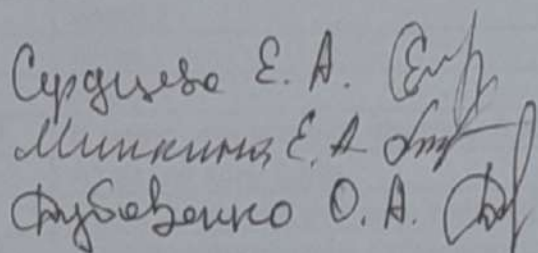 Сердцева Е. А.
Минкина Е. А
Дубовенко О. А.